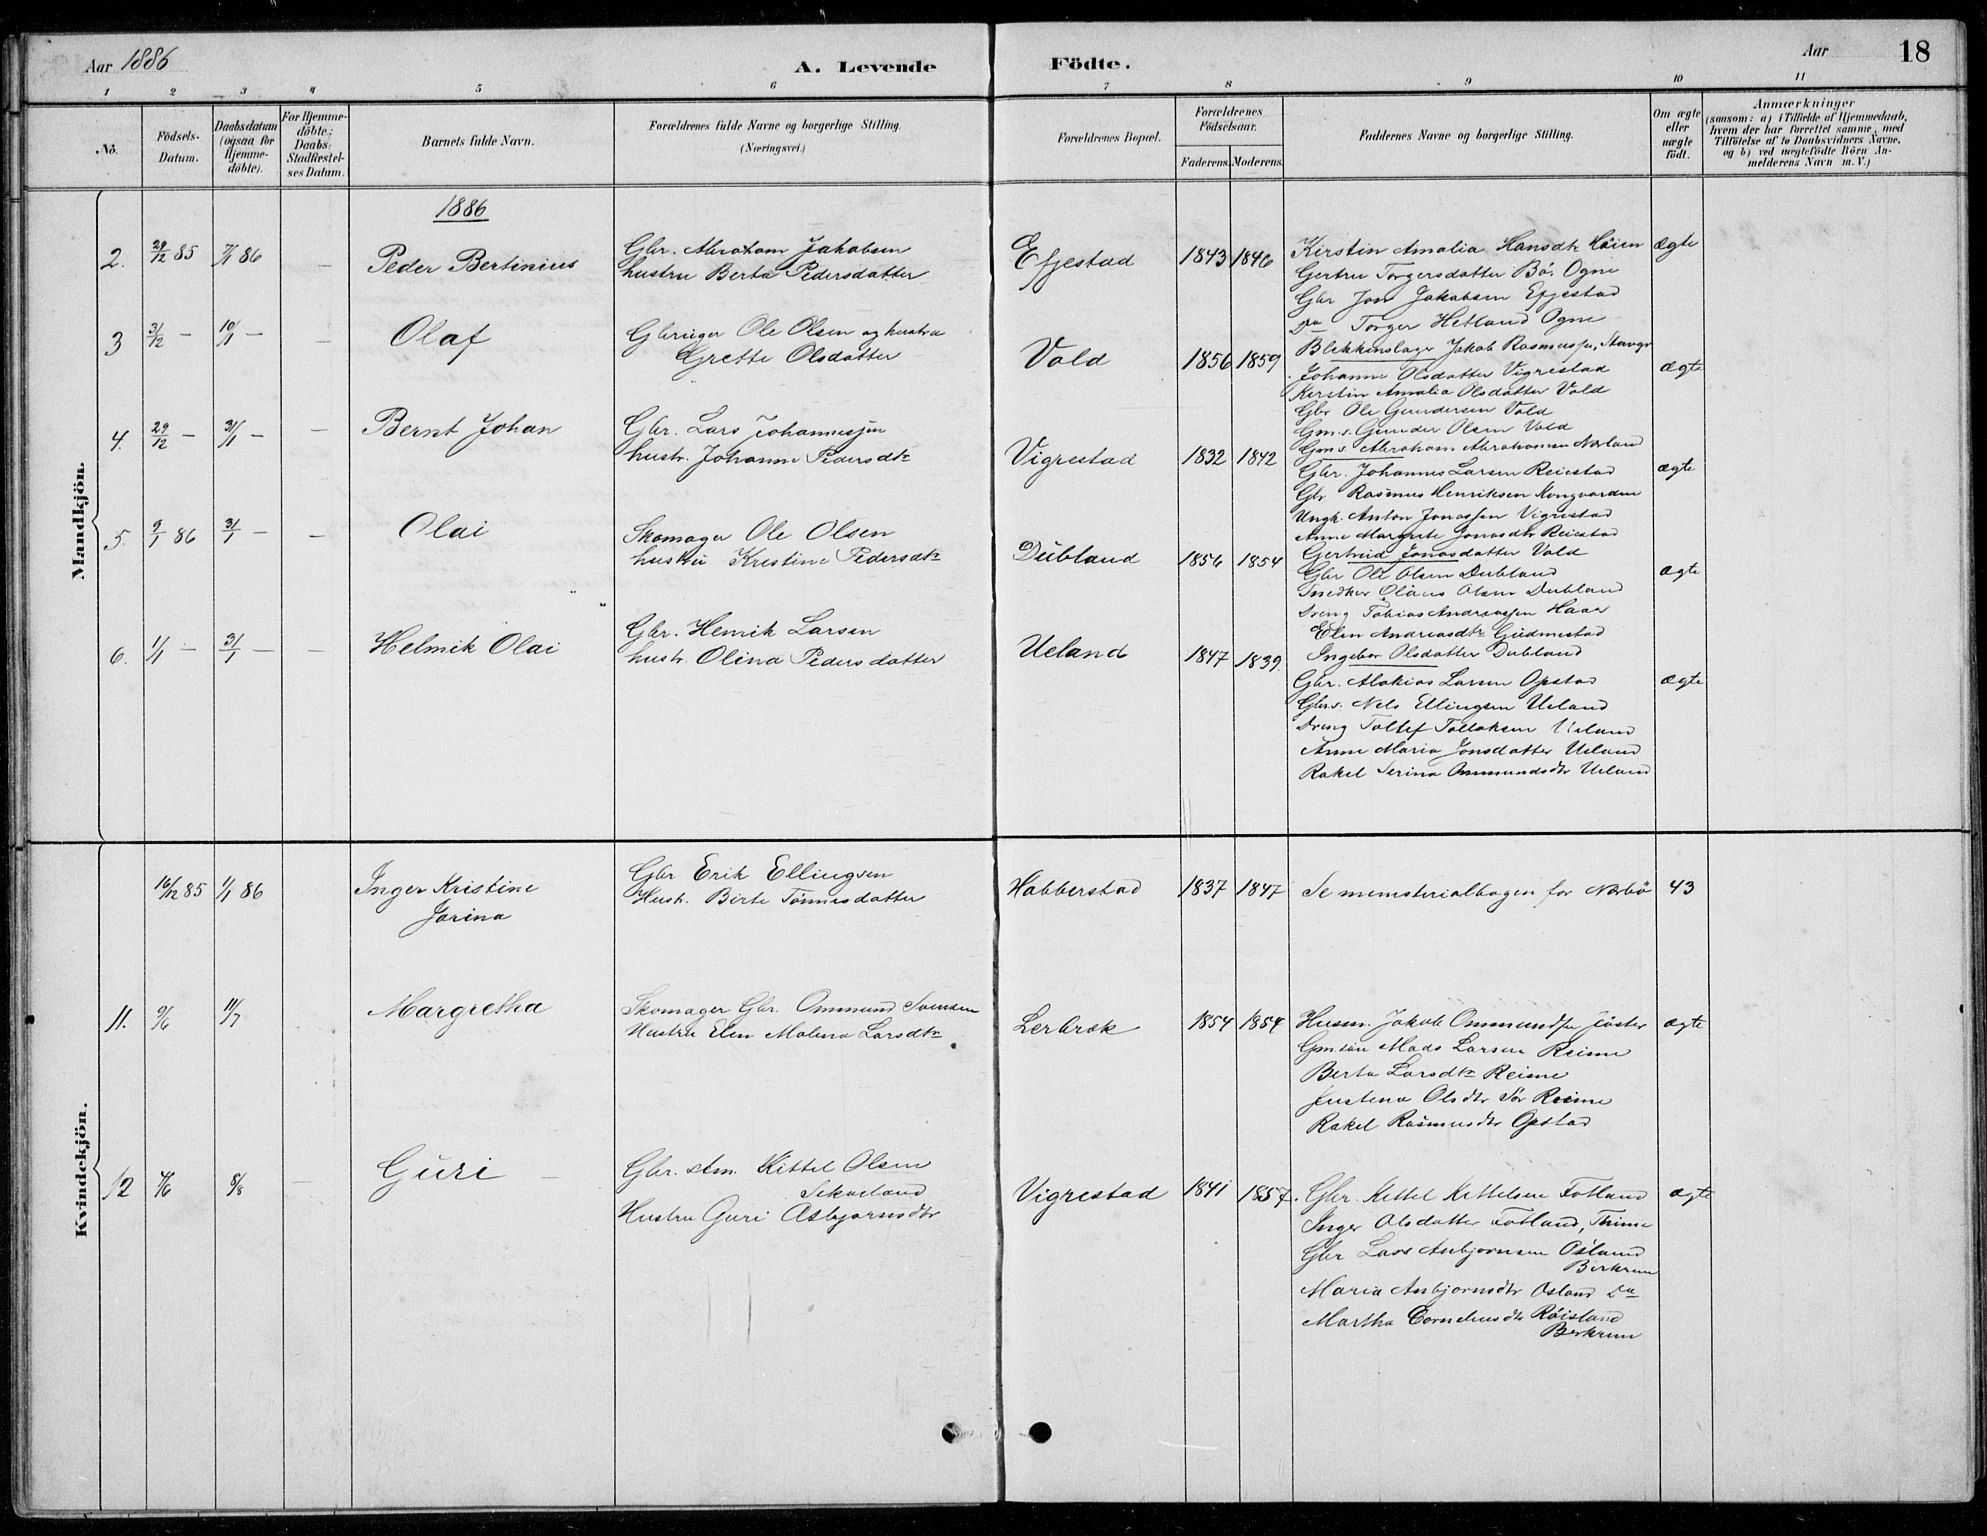 Aar 1886
A. Levende Födte.
Aar
18
1 2 3 4 5 6 7 8 9 10 11
No.
Födsels-Datum.
Daabsdatum (ogsaa for Hjemme-döbte).
For Hjemme-döbte: Daabs Stadfæstel-ses Datum.
Barnets fulde Navn.
Forældrenes fulde Navne og borgerlige Stilling.
(Næringsvei.)
Forældrenes Bopæl.
Forældrenes Födselsaar.
Faderens. Moderens.
Faddernes Navne og borgerlige Stilling.
Om ægte eller uægte födt.
Anmærkninger
(saasom: a) i Tilfælde af Hjemmedaab,
hvem der har forrettet samme, med
Tilföielse af to Daabsvidners Navne,
og b) ved uægtefödte Börn An-
melderens Navn m. V.)
Mandkjön.
1886
2. 29/12 85 7/1 86 — Peder Bertinius
Gbr. Abraham Jakobsen
hustru Berta Pedersdatter
Efjestad 1843 1846
Kirstin Amalia Hansdtr Höien ægte
Gertru Torgersdatter Bö, Ogne
Gbr Jon Jakobsen Efjestad
Do Torger Hetland Ogne
3 31/12 — 10/1 — — Olaf
Gbruger Ole Olsen og hustru
Grette Olsdatter
Vold 1856 1859
Blikkenslager Jakob Rasmussen, Stavgr
Johanne Olsdatter Vigrestad ægte
Kerstin Amalia Olsdatter Vold
Gbr Ole Gundersen Vold
Gm.s. Gunder Olsen Vold
4. 29/12 — 31/1 — — Bernt Johan
Gbr. Lars Johannessen
hustr. Johanne Pedersdtr
Vigrestad 1832 1842
Gms. Abraham Abrahamsen Nærland
Gbr. Johannes Larsen Reiestad ægte
Gbr Rasmus Henriksen Kongvarden
Ungk. Anton Jonassen Vigrestad
Anne Margrete Jonasdtr Reiestad
Gertrud Jonasdatter Vold
5. 9/1 86 31/1 — — Olai
Skomager Ole Olsen
hustru Kristine Pedersdtr
Dubland 1856 1854
Gbr Ole Olsen Dubland ægte
Snedker Olaus Olsen Dubland
Dreng Tobias Andreassen Haar
Elen Andreasdtr Gudmestad
Ingebor Olsdatter Dubland
6. 1/1 — 31/1 — — Helmik Olai
Gbr. Henrik Larsen
hustr. Olina Pedersdatter
Ueland 1847 1839.
Gbr. Malkias Larsen Opstad ægte
Gbrs. Nels Ellingsen Ueland
Dreng Tollef Tollaksen Ueland
Anne Maria Jonsdatter Ueland
Rakel Serina Ommundsdtr Ueland
Kvindekjön.
16/12 85 1/1 86 Inger Kristine
Jorina
Gbr Erik Ellingsen
Hustr. Birte Tönnesdatter
Habberstad 1837 1847
Se menisterialbogen for Nærbö 43
11. 9/6 11/7 Margretha
Skomager Gbr. Ommund Svensen
Hustru Elen Malena Larsdtr
Lerbræk 1854 1854
Husm. Jakob Ommundsen Joster ægte
Gmsön Mads Larsen Reime
Berta Larsdtr Reime
Justena Olsdtr Sör Reime
Rakel Rasmusdtr Opstad
12 4/6 8/8 — Guri —
Gbr. Am. Kittel Olsen
Hustru Guri Asbjornsdtr
Vigrestad 1841 1857.
Gbr. Kittel Kittelsen Fotland ægte
Inger Olsdatter Fotland, Thime
Gbr Lars Anbjornsen Osland
Birkrem
Maria Anbjornsdtr Osland Do
Martha Corneliusdtr Röisland
Berkrem